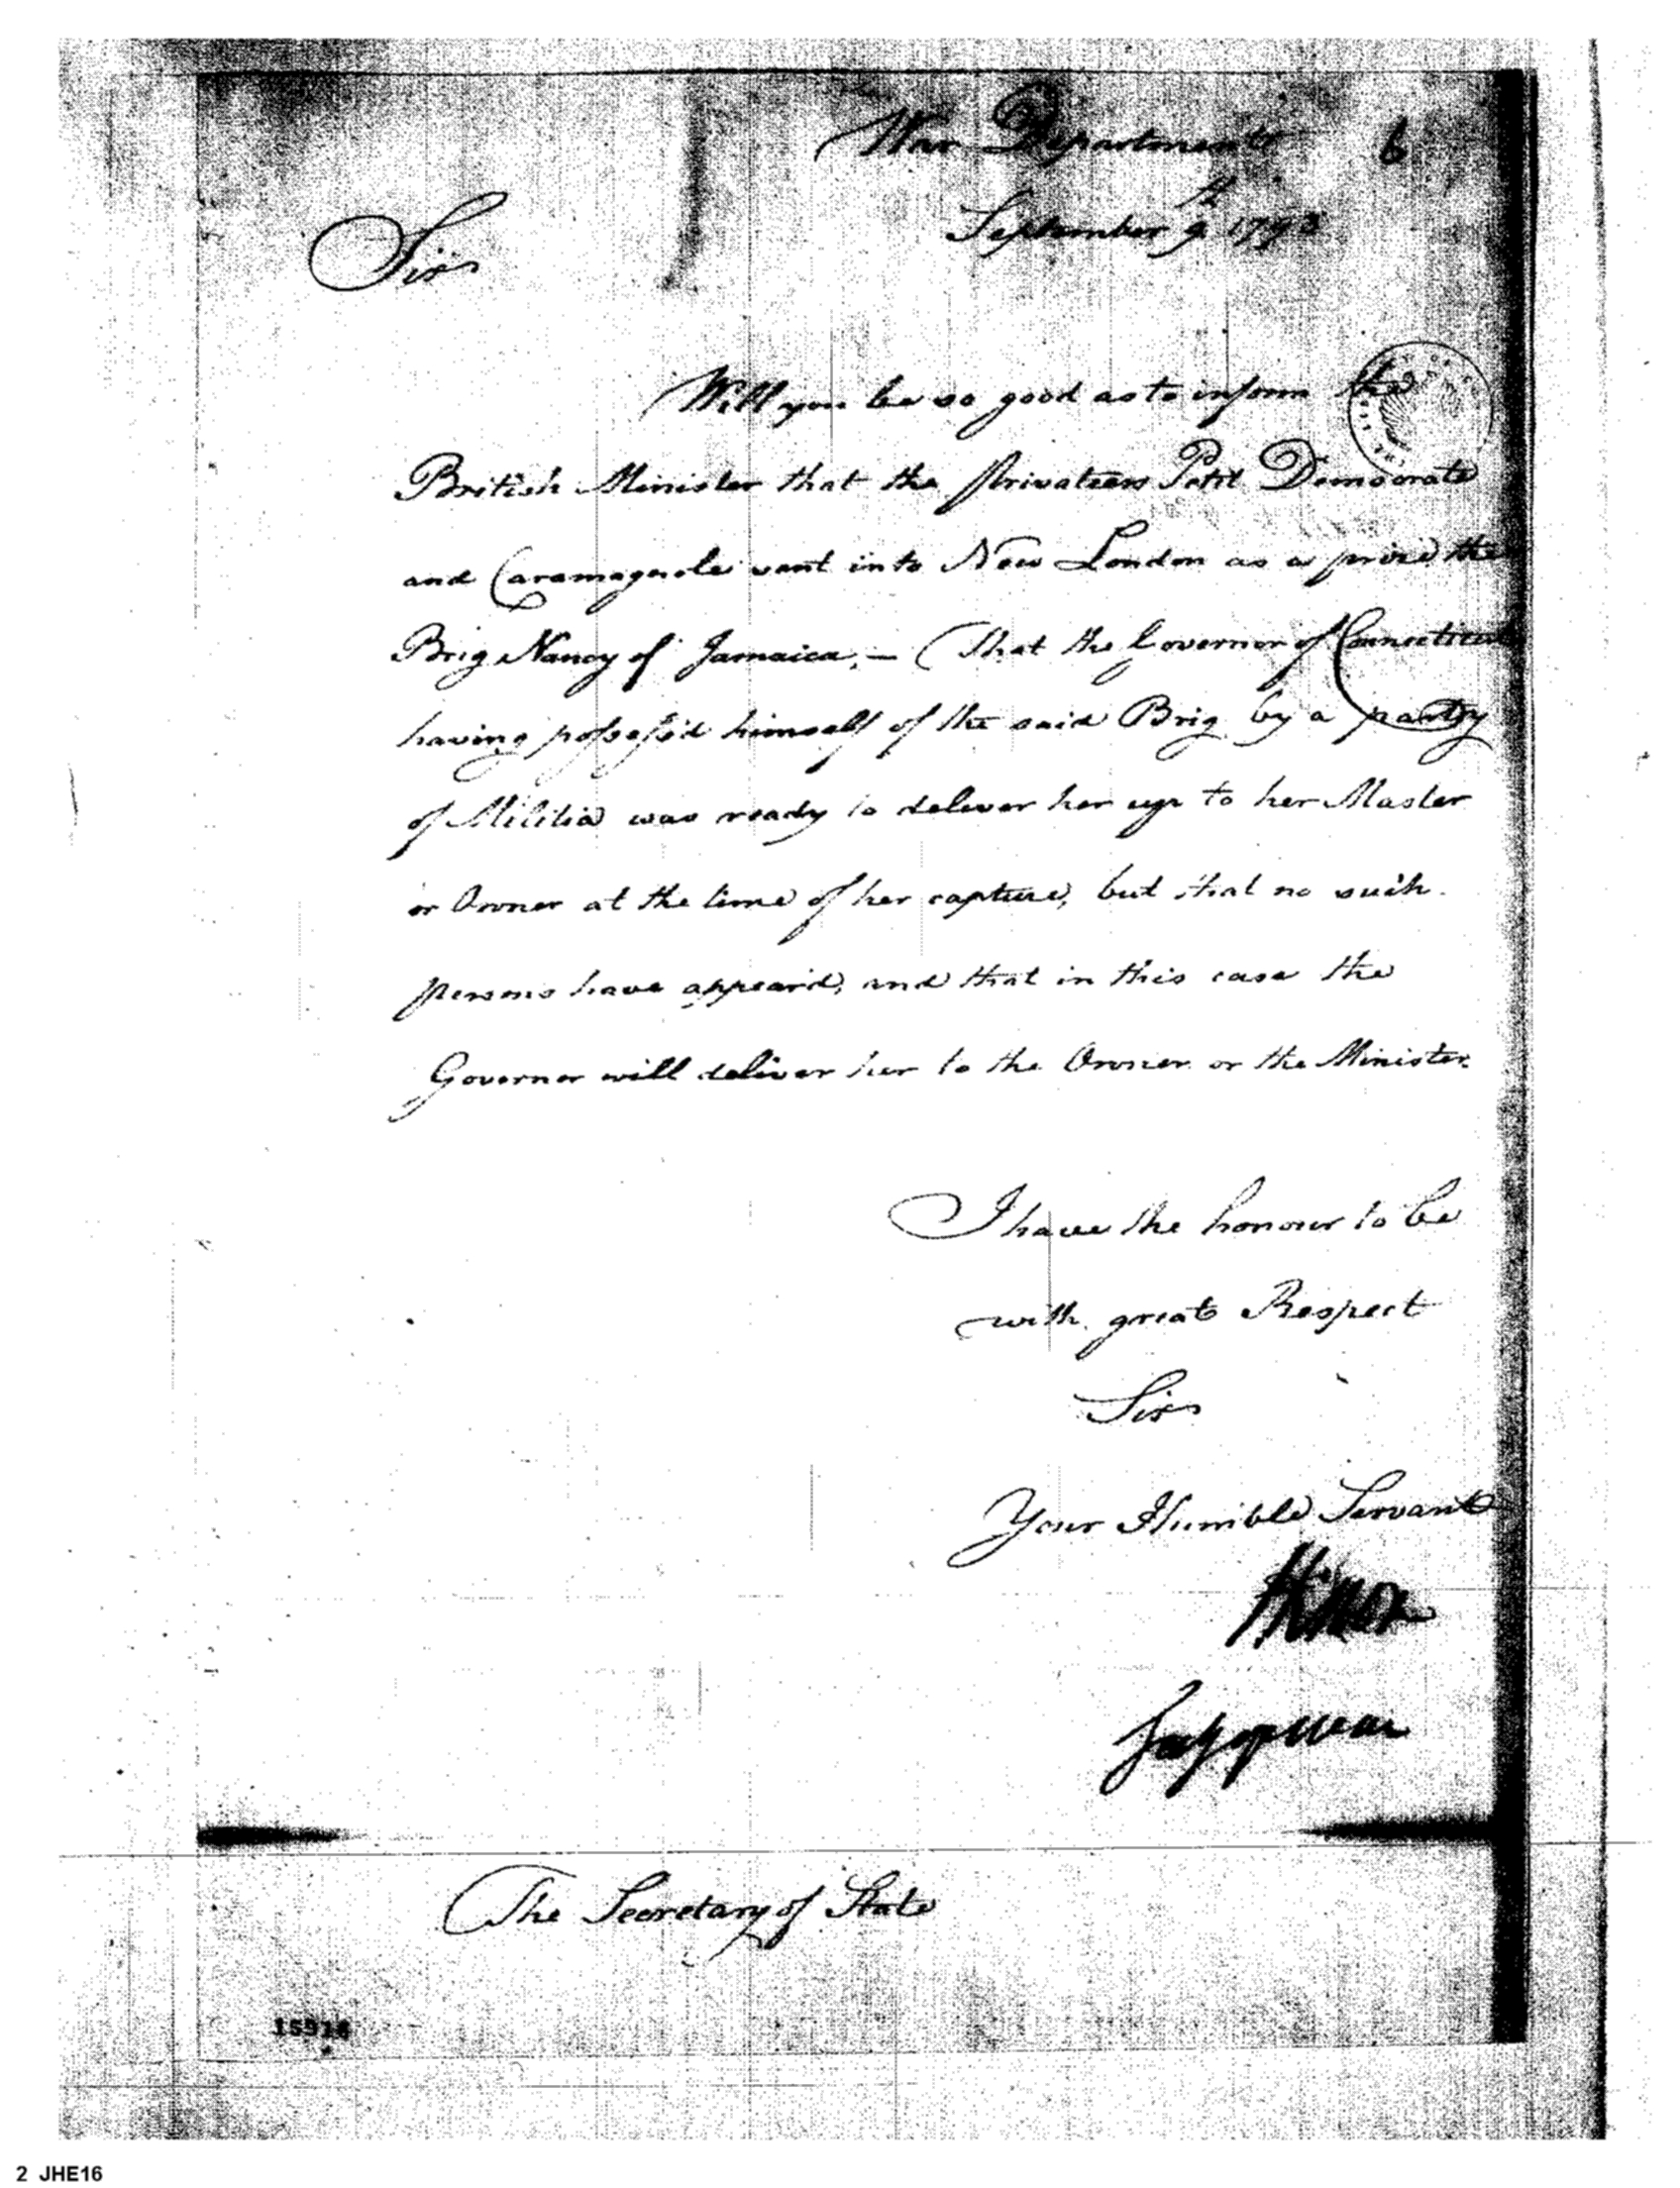 War Department 6
September 9th 1793
Sir
Will you be so good as to inform the
British Minister that the privateers Petit Democrate
and Caramagnole sent into New London as a prize the
Brig Nancy of Jamaica,— That the Governor of Connecticut
having possess'd himself of the said Brig by a party
of Militia was ready to deliver her up to her Master
or Owner at the time of her capture, but that no such
persons have appear'd, and that in this case the
Governor will deliver her to the Owner or the Minister.
I have the honour to be
with great Respect
Sir
Your Humble Servant
HKnox
Secy of War
The Secretary of State
2 JHE16